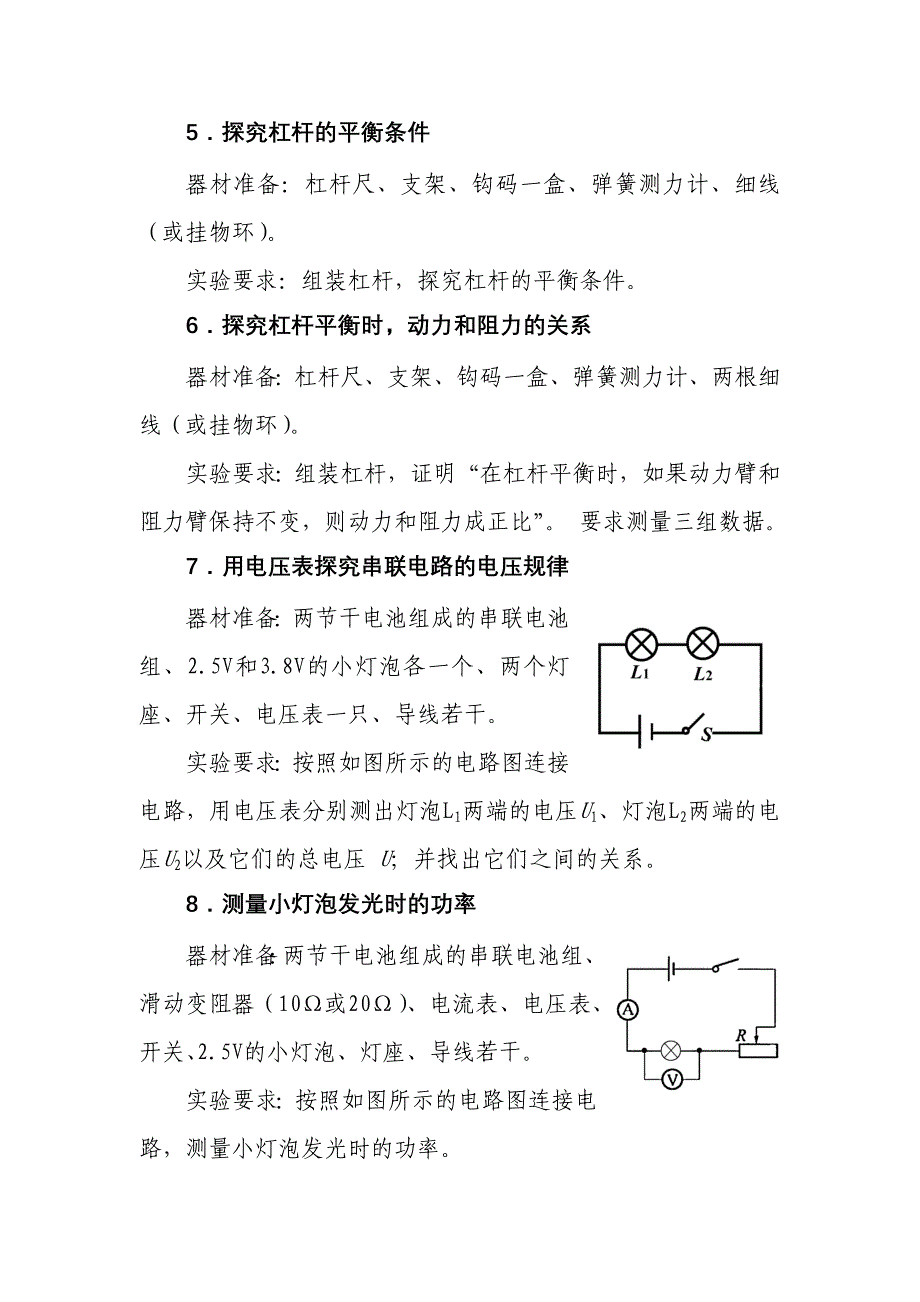 5．探究杠杆的平衡条件
器材准备：杠杆尺、支架、钩码一盒、弹簧测力计、细线
（或挂物环）。
实验要求：组装杠杆，探究杠杆的平衡条件。
6．探究杠杆平衡时，动力和阻力的关系
器材准备：杠杆尺、支架、钩码一盒、弹簧测力计、两根细
线（或挂物环）。
实验要求：组装杠杆，证明“在杠杆平衡时，如果动力臂和
阻力臂保持不变，则动力和阻力成正比”。 要求测量三组数据。
7．用电压表探究串联电路的电压规律
器材准备：两节干电池组成的串联电池
组、2.5V和3.8V的小灯泡各一个、两个灯
座、开关、电压表一只、导线若干。
L1 L2
S
实验要求：按照如图所示的电路图连接
电路，用电压表分别测出灯泡L1两端的电压U1、灯泡L2两端的电
压U2以及它们的总电压 U；并找出它们之间的关系。
8．测量小灯泡发光时的功率
器材准备：两节干电池组成的串联电池组、
滑动变阻器（10Ω或20Ω）、电流表、电压表、
开关、2.5V的小灯泡、灯座、导线若干。
A
R
V
实验要求：按照如图所示的电路图连接电
路，测量小灯泡发光时的功率。